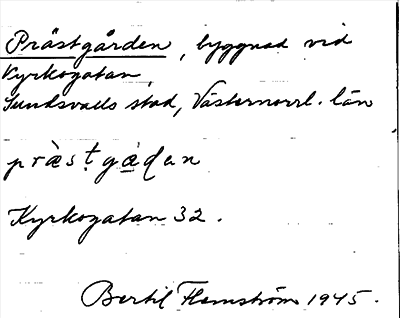 Prästgården, byggnad vid
Kyrkogatan,
Sundsvalls stad, Västernorrl. län
pràsṭgà̲ḍan
Kyrkogatan 32.
Bertil Flemström 1945.